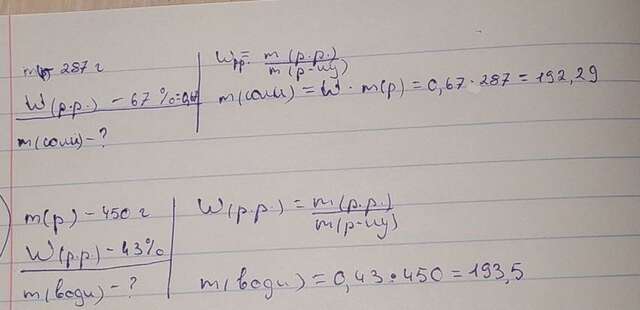 m р 287 г
W(р.р.) - 67 % = 0,67
m(солі) - ?
Wрр. = m (р.р.) / m (р-ну)
m(солі) = W · m(р) = 0,67 · 287 = 192,29
m(р) - 450 г
W(р.р.) - 43%
m(води) - ?
W(р.р.) = m(р.р.) / m(р-ну)
m(води) = 0,43 · 450 = 193,5